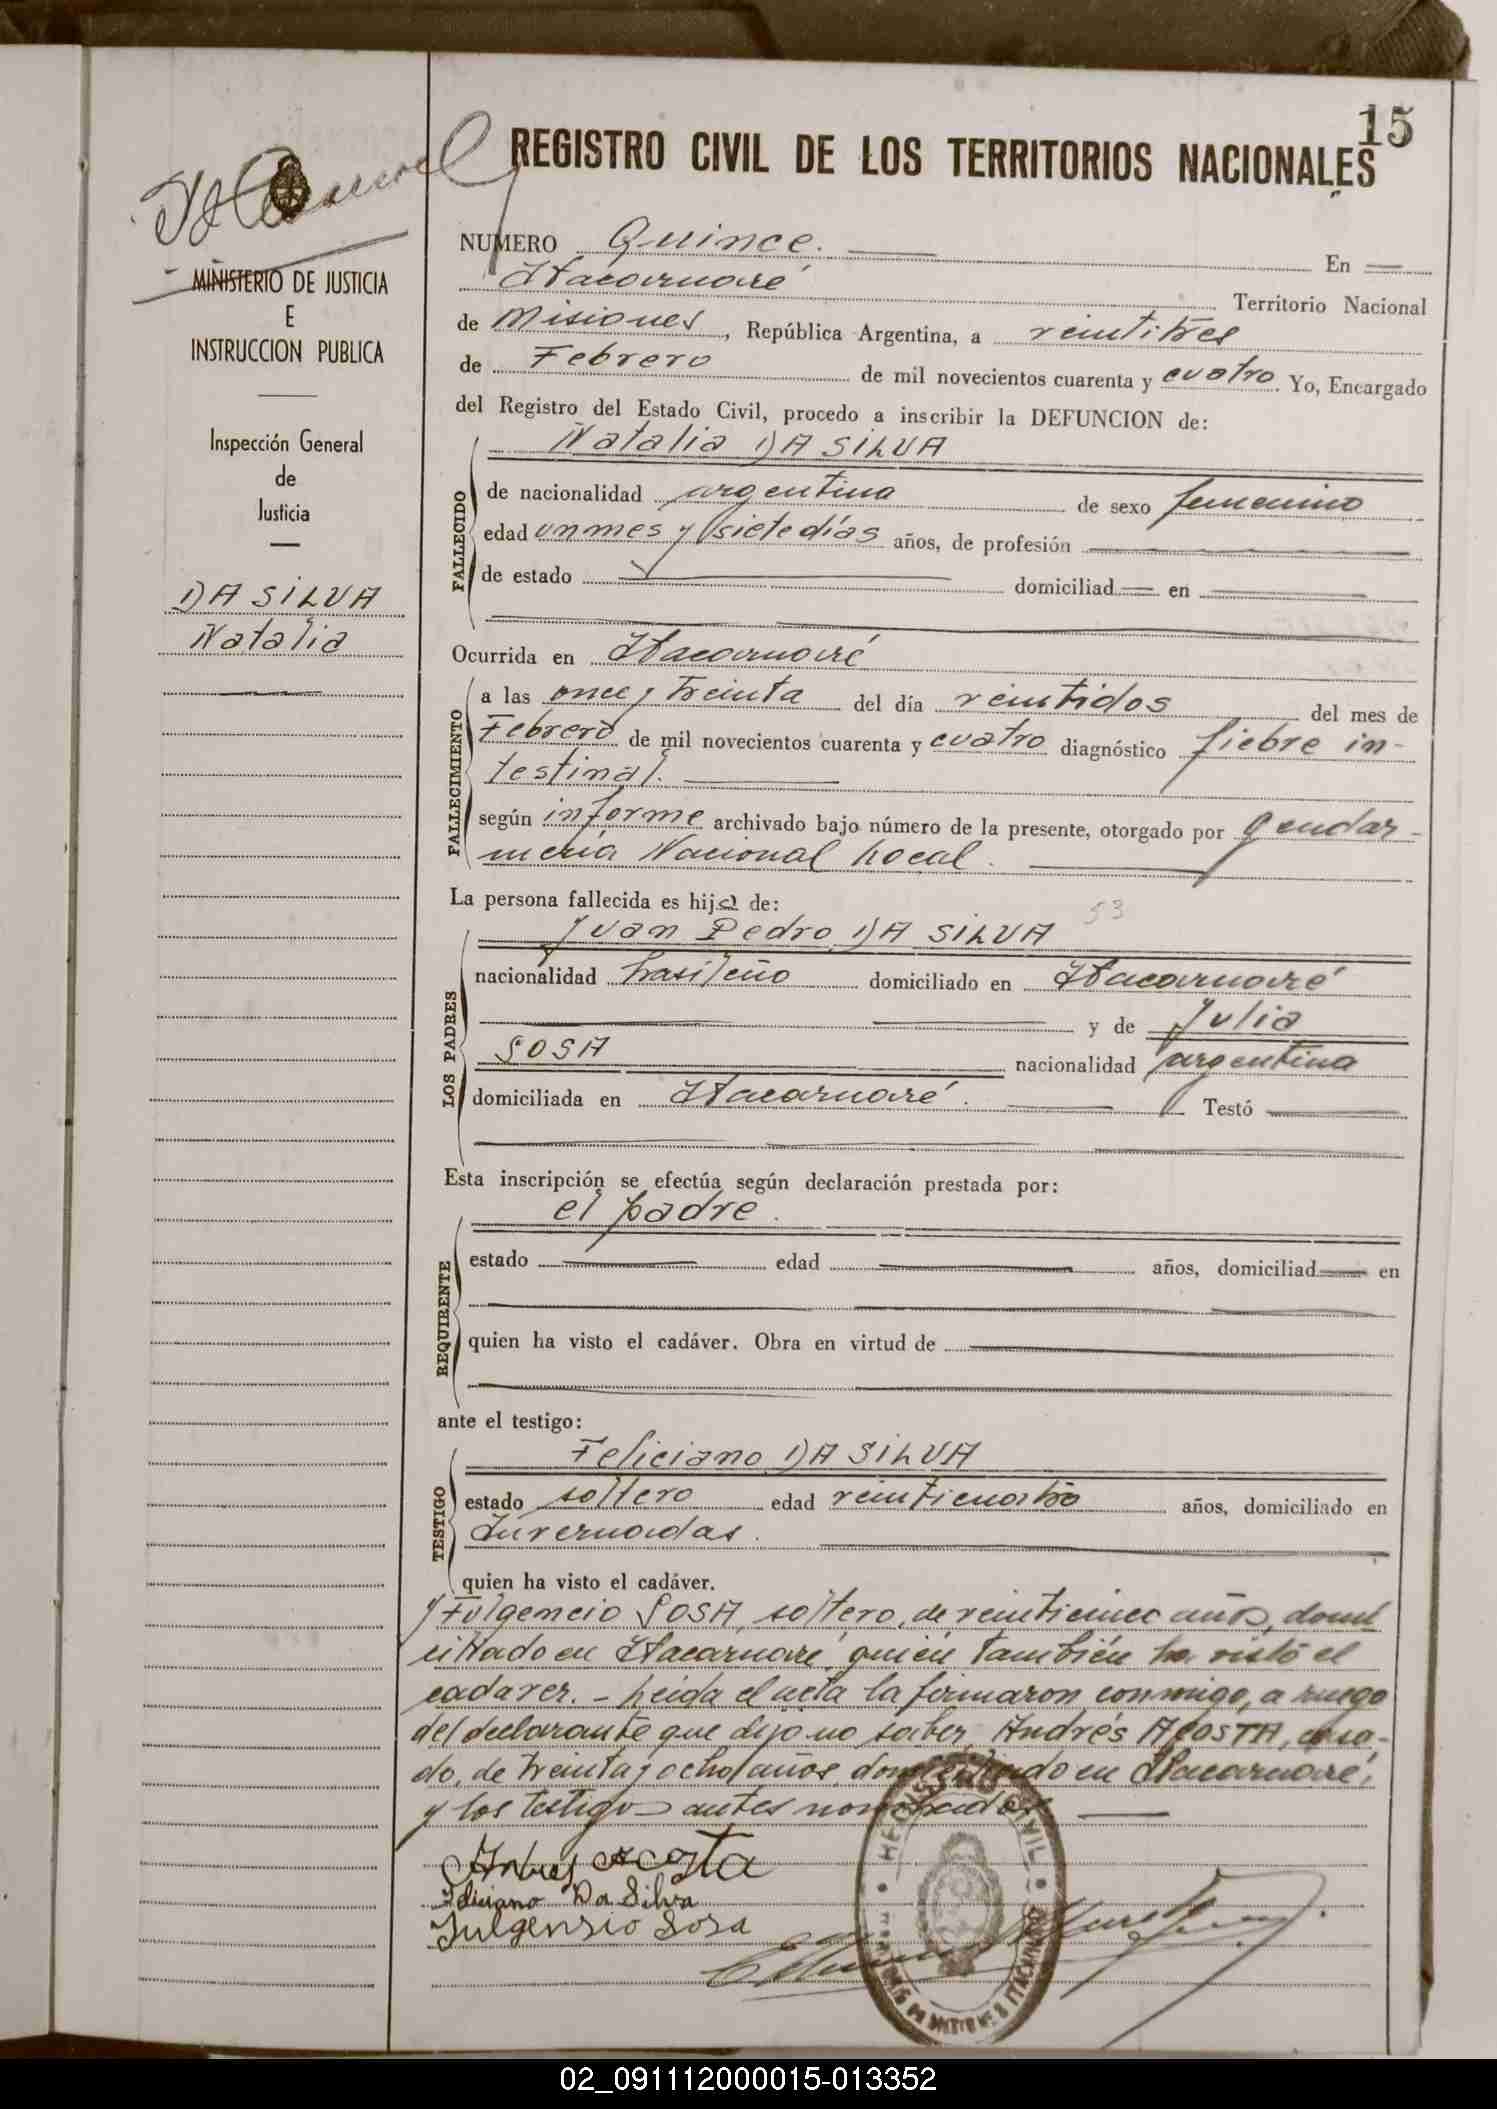 15
REGISTRO CIVIL DE LOS TERRITORIOS NACIONALES
MINISTERIO DE JUSTICIA
E
INSTRUCCION PUBLICA
Inspección General
de
Justicia
DA SILVA
Natalia
NUMERO Quince. En
Itacaruaré Territorio Nacional
de Misiones, República Argentina, a veintitres
de Febrero de mil novecientos cuarenta y cuatro Yo, Encargado
del Registro del Estado Civil, procedo a inscribir la DEFUNCION de:
Natalia DA SILVA
FALLECIDO
de nacionalidad argentina de sexo femenino
edad un mes y siete días años, de profesión
de estado domiciliad en
Ocurrida en Itacaruaré
FALLECIMIENTO
a las once y treinta del día veintidos del mes de
Febrero de mil novecientos cuarenta y cuatro diagnóstico fiebre in-
testinal.
según informe archivado bajo número de la presente, otorgado por Gendar-
mería Nacional Local.
La persona fallecida es hija de:
53
Juan Pedro DA SILVA
LOS PADRES
nacionalidad brasileño domiciliado en Itacaruaré
y de Julia
SOSA nacionalidad argentina
domiciliada en Itacaruaré. Testó
Esta inscripción se efectúa según declaración prestada por:
el padre.
REQUIRENTE
estado edad años, domiciliad en
quien ha visto el cadáver. Obra en virtud de
ante el testigo:
Feliciano DA SILVA
TESTIGO
estado soltero edad veinticuatro años, domiciliado en
Invernadas.
quien ha visto el cadáver.
y Fulgencio SOSA, soltero, de veinticinco años, domi
ciliado en Itacaruaré, quien también ha visto el
cadaver. - Leida el acta la firmaron conmigo, a ruego
del declarante que dijo no saber, Andrés ACOSTA, casa-
do, de treinta y ocho años, domiciliado en Itacaruaré,
y los testigos antes nombrados
Andres Acosta
Feliciano Da Silva
Fulgensio Sosa
REGISTRO CIVIL